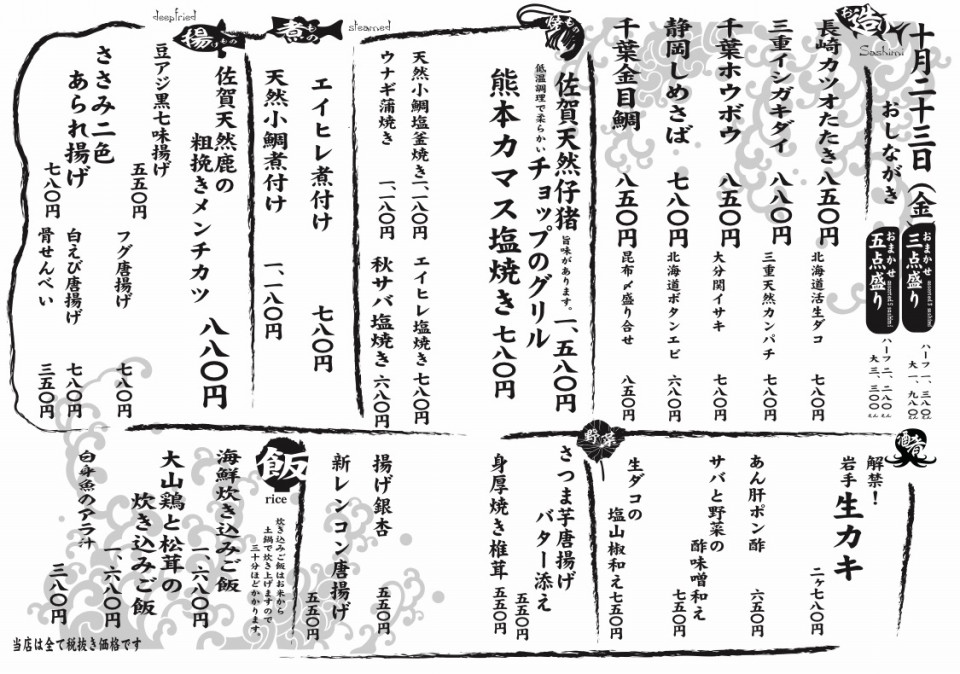 十月二十三日(金)
おしながき
おまかせ
三点盛り
ハーフ 一、三八〇
大 一、九八〇
おまかせ
五点盛り
ハーフ 二、二八〇
大 三、三〇〇
お造り
Sashimi
長崎カツオたたき 八五〇円
北海道活生ダコ 七八〇円
三重イシガキダイ 八八〇円
三重天然カンパチ 七八〇円
千葉ホウボウ 八五〇円
大分関イサキ 七八〇円
静岡しめさば 七八〇円
北海道ボタンエビ 六八〇円
千葉金目鯛 八五〇円
昆布〆盛り合せ 八五〇円
焼もの
佐賀天然仔猪 旨味があります。
低温調理で柔らかい チョップのグリル 一、五八〇円
熊本カマス塩焼き 七八〇円
天然小鯛塩釜焼き 一、二八〇円
エイヒレ塩焼き 七八〇円
ウナギ蒲焼き 一、一八〇円
秋サバ塩焼き 六八〇円
煮もの
steamed
エイヒレ煮付け 七八〇円
天然小鯛煮付け 一、一八〇円
揚げもの
deepfried
佐賀天然鹿の
粗挽きメンチカツ 八八〇円
豆アジ黒七味揚げ 五五〇円
フグ唐揚げ 七八〇円
ささみ二色
あられ揚げ 七八〇円
白えび唐揚げ 七八〇円
骨せんべい 三五〇円
酒肴
解禁!
岩手 生カキ 二ヶ七八〇円
あん肝ポン酢 六五〇円
サバと野菜の
酢味噌和え 七五〇円
生ダコの
塩山椒和え 七五〇円
野菜
さつま芋唐揚げ
バター添え 五五〇円
身厚焼き椎茸 五五〇円
揚げ銀杏 五五〇円
新レンコン唐揚げ 五五〇円
飯
rice
炊き込みご飯はお米から
土鍋で炊き上げますので
三十分ほどかかります。
海鮮炊き込みご飯 一、六八〇円
大山鶏と松茸の
炊き込みご飯 一、六八〇円
白身魚のアラ汁 三八〇円
当店は全て税抜き価格です